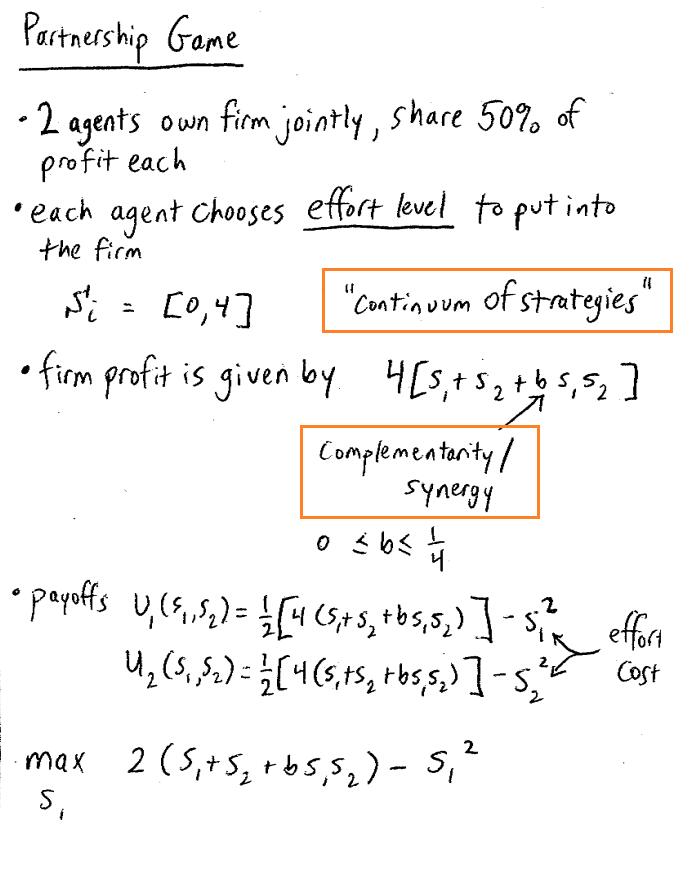 Partnership Game
• 2 agents own firm jointly, share 50% of
profit each
• each agent chooses effort level to put into
the firm
S'ᵢ = [0,4] "Continuum of strategies"
• firm profit is given by 4[s₁+s₂+b s₁s₂]
Complementarity/
synergy
0 ≤ b ≤ 1/4
• payoffs U₁(s₁,s₂)=1/2[4(s₁+s₂+bs₁s₂)]-s₁²
effort
U₂(s₁,s₂)=1/2[4(s₁+s₂+bs₁s₂)]-s₂²
cost
max 2(s₁+s₂+bs₁s₂)-s₁²
s₁